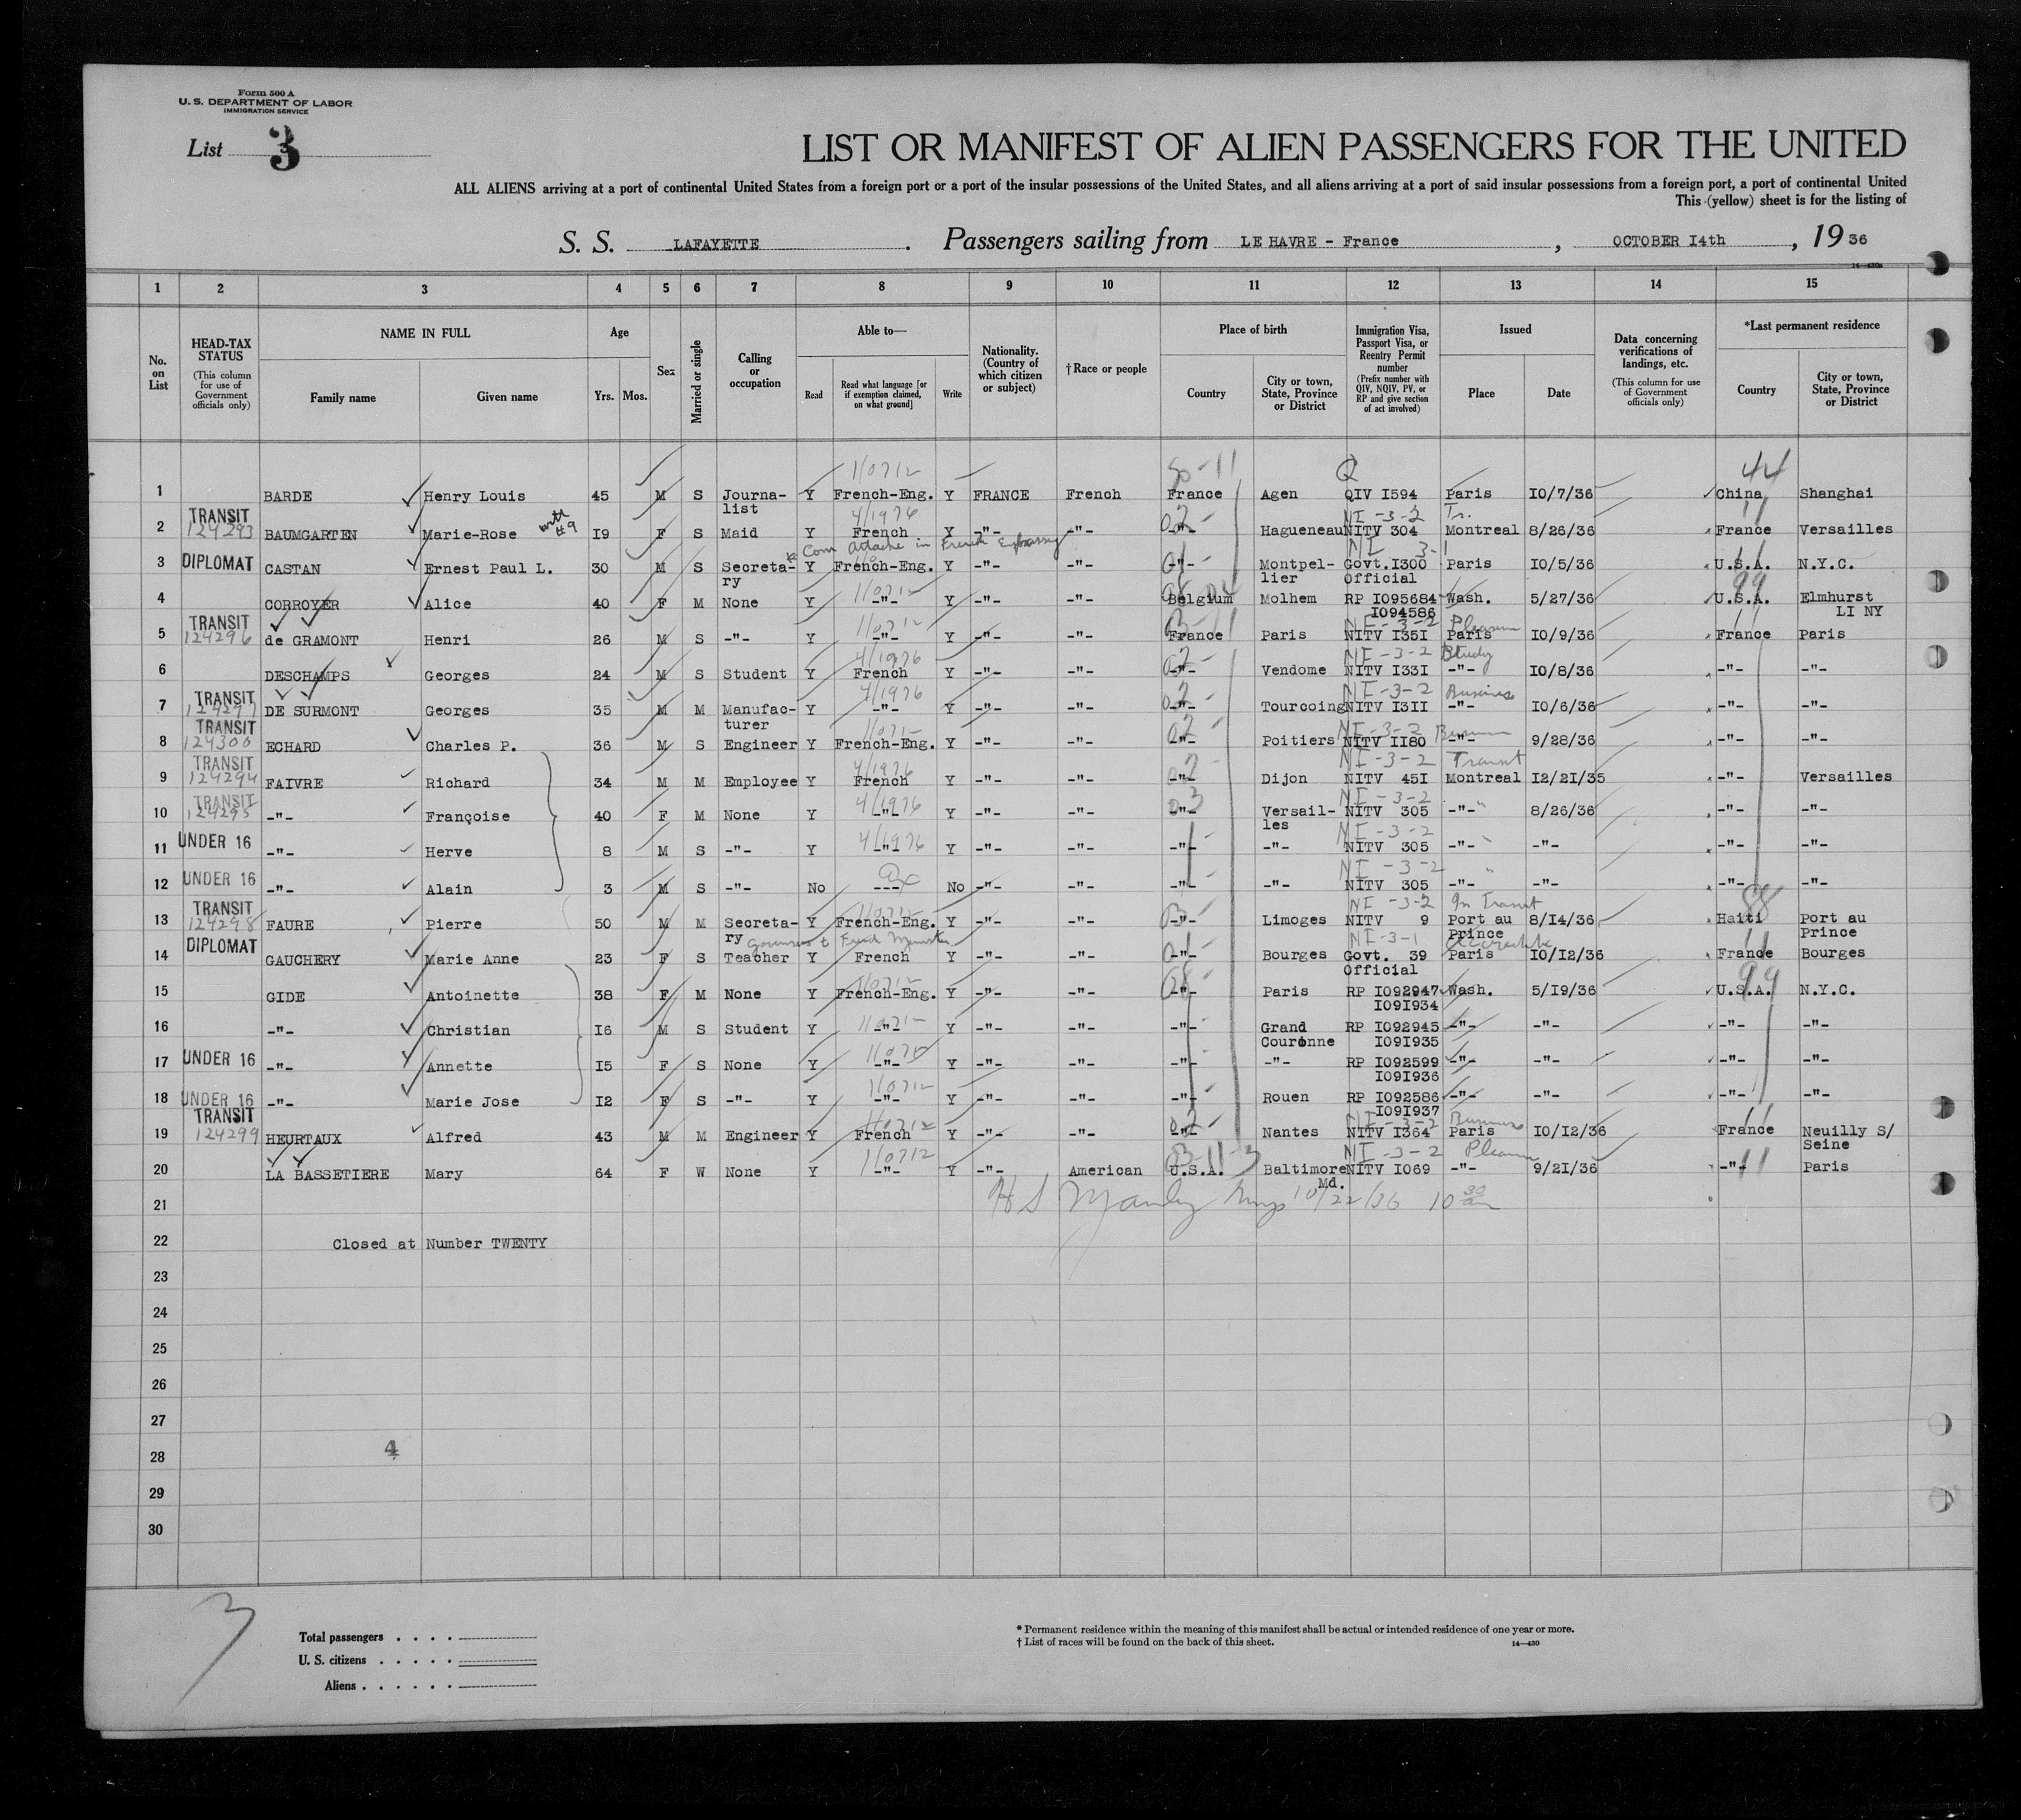 Form 500 A
U. S. DEPARTMENT OF LABOR
IMMIGRATION SERVICE
List 3
LIST OR MANIFEST OF ALIEN PASSENGERS FOR THE UNITED
ALL ALIENS arriving at a port of continental United States from a foreign port or a port of the insular possessions of the United States, and all aliens arriving at a port of said insular possessions from a foreign port, a port of continental United
This (yellow) sheet is for the listing of
S. S. LAFAYETTE . Passengers sailing from LE HAVRE - France , OCTOBER I4th , 19 36
14—430a
1 2 3 4 5 6 7 8 9 10 11 12 13 14 15
No. on List
HEAD-TAX STATUS (This column for use of Government officials only)
NAME IN FULL Family name Given name
Age Yrs. Mos.
Sex
Married or single
Calling or occupation
Able to— Read Read what language [or if exemption claimed, on what ground] Write
Nationality. (Country of which citizen or subject)
†Race or people
Place of birth Country City or town, State, Province or District
Immigration Visa, Passport Visa, or Reentry Permit number (Prefix number with QIV, NQIV, PV, or RP and give section of act involved)
Issued Place Date
Data concerning verifications of landings, etc. (This column for use of Government officials only)
*Last permanent residence Country City or town, State, Province or District
110712 50-11 Q 44
1 BARDE Henry Louis 45 M S Journa- Y French-Eng. Y FRANCE French France Agen QIV I594 Paris IO/7/36 China Shanghai
list
TRANSIT 4/1976 NI-3-2 Tr. 11
2 124293 BAUMGARTEN Marie-Rose with #9 I9 F S Maid Y French Y -"- -"- -"- Hagueneau NITV 304 Montreal 8/26/36 France Versailles
Com Attache in French Embassy NI 3-1
3 DIPLOMAT CASTAN Ernest Paul L. 30 M S Secreta- Y French-Eng. Y -"- -"- -"- Montpel- Govt.I300 Paris IO/5/36 U.S.A. N.Y.C.
ry lier Official 99
4 CORROYER Alice 40 F M None Y -"- Y -"- -"- Belgium Molhem RP IO95684 Wash. 5/27/36 U.S.A. Elmhurst
IO94586 LI NY
TRANSIT 11071- NI-3-2 Pleasure
5 124296 de GRAMONT Henri 26 M S -"- Y -"- Y -"- -"- France Paris NITV I35I Paris IO/9/36 France Paris
4/1976 NI-3-2 Study
6 DESCHAMPS Georges 24 M S Student Y French Y -"- -"- -"- Vendome NITV I33I -"- IO/8/36 -"- -"-
TRANSIT 4/1976 NI-3-2 Business
7 124297 DE SURMONT Georges 35 M M Manufac- Y -"- Y -"- -"- -"- Tourcoing NITV I3II -"- IO/6/36 -"- -"-
turer
TRANSIT NI-3-2
8 124300 ECHARD Charles P. 36 M S Engineer Y French-Eng. Y -"- -"- -"- Poitiers NITV II80 -"- 9/28/36 -"- -"-
TRANSIT 4/1976 NI-3-2 Transit
9 124294 FAIVRE Richard 34 M M Employee Y French Y -"- -"- -"- Dijon NITV 45I Montreal I2/2I/35 -"- Versailles
TRANSIT 4/1976 NI-3-2
10 124295 -"- Françoise 40 F M None Y -"- Y -"- -"- -"- Versail- NITV 305 -"- 8/26/36 -"- -"-
les
4/1976 NI-3-2
11 UNDER 16 -"- Herve 8 M S -"- Y -"- Y -"- -"- -"- -"- NITV 305 -"- -"- -"- -"-
NI-3-2
12 UNDER 16 -"- Alain 3 M S -"- No --- No -"- -"- -"- -"- NITV 305 -"- -"- -"- -"-
TRANSIT NI-3-2 In Transit 88
13 124298 FAURE Pierre 50 M M Secreta- Y French-Eng. Y -"- -"- -"- Limoges NITV 9 Port au 8/14/36 Haiti Port au
ry Prince Prince
DIPLOMAT Governess to French Minister NI-3-1 11
14 GAUCHERY Marie Anne 23 F S Teacher Y French Y -"- -"- -"- Bourges Govt. 39 Paris IO/I2/36 France Bourges
Official 99
15 GIDE Antoinette 38 F M None Y French-Eng. Y -"- -"- -"- Paris RP IO92947 Wash. 5/I9/36 U.S.A. N.Y.C.
IO9I934
16 -"- Christian I6 M S Student Y -"- Y -"- -"- -"- Grand RP IO92945 -"- -"- -"- -"-
Couronne IO9I935
17 UNDER 16 -"- Annette I5 F S None Y -"- Y -"- -"- -"- -"- RP IO92599 -"- -"- -"- -"-
IO9I936
18 UNDER 16 -"- Marie Jose I2 F S -"- Y -"- Y -"- -"- -"- Rouen RP IO92586 -"- -"- -"- -"-
IO9I937
TRANSIT 110712 NI-3-2 11
19 124299 HEURTAUX Alfred 43 M M Engineer Y French Y -"- -"- -"- Nantes NITV I364 Paris IO/I2/36 France Neuilly S/
Seine
110712 NI-3-2 Pleasure
20 LA BASSETIERE Mary 64 F W None Y -"- Y -"- American U.S.A. Baltimore NITV IO69 -"- 9/2I/36 -"- Paris
Md.
21 H S Manley 10/22/36 10 30 am
22 Closed at Number TWENTY
23
24
25
26
27
4
28
29
30
3
Total passengers . . . .
U. S. citizens . . . . .
Aliens . . . . . .
* Permanent residence within the meaning of this manifest shall be actual or intended residence of one year or more.
† List of races will be found on the back of this sheet.
14—430